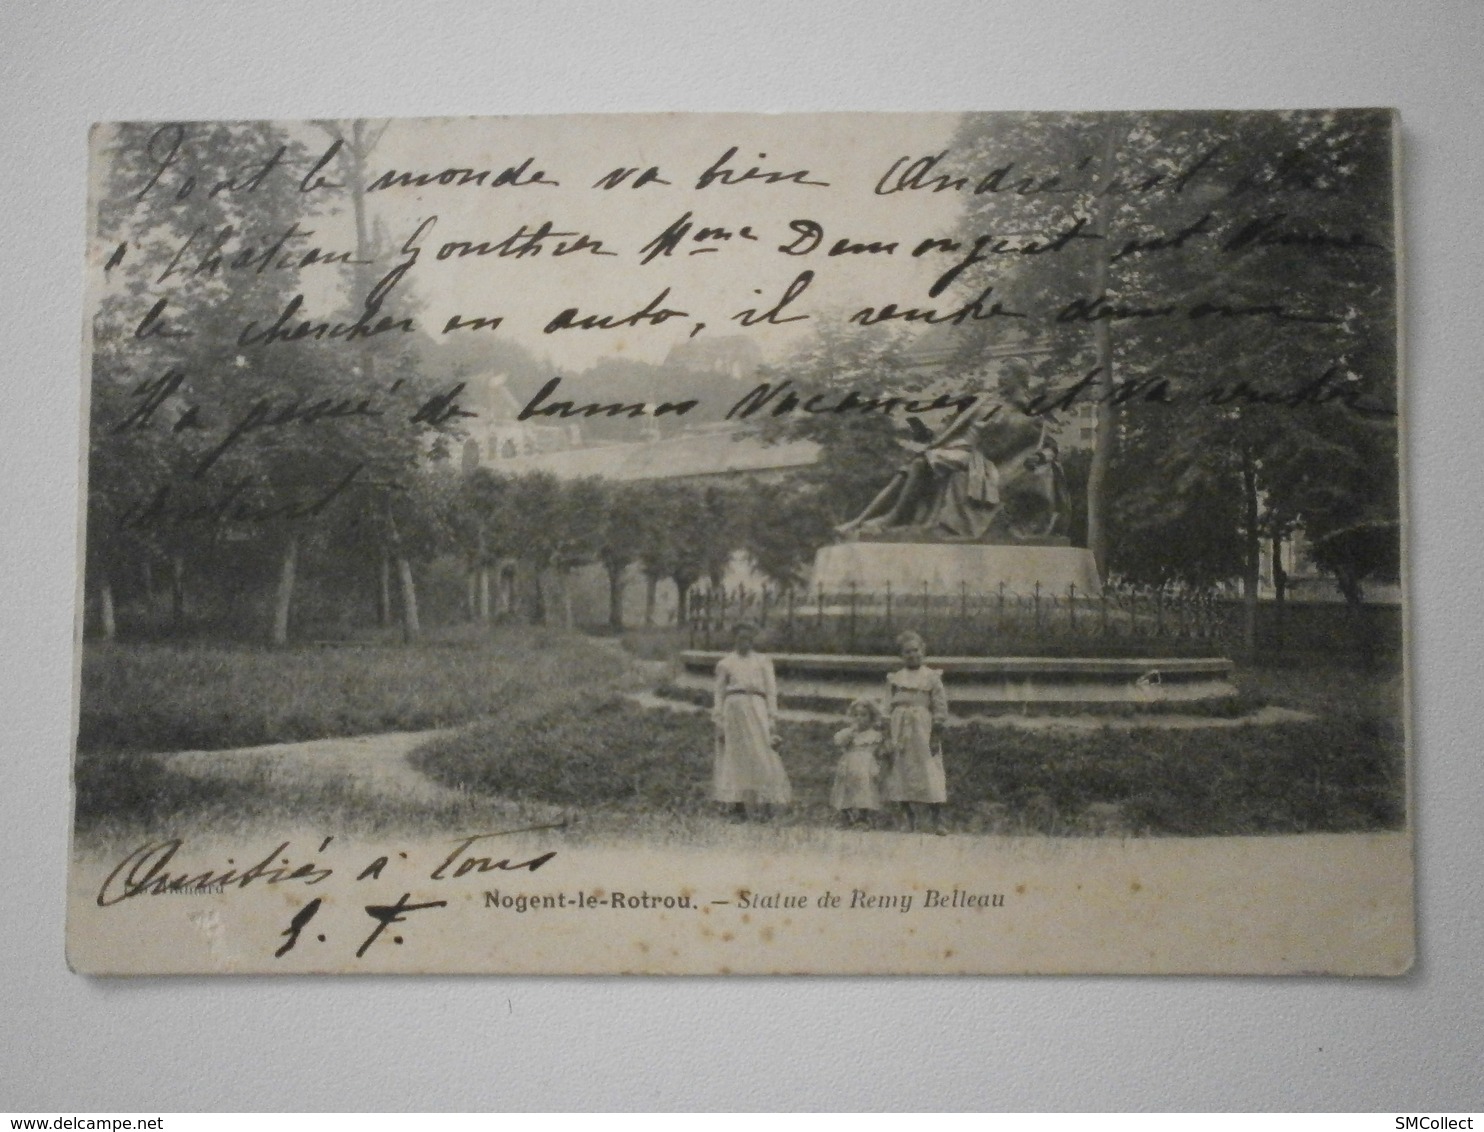 Tout le monde va bien André est allé
à Chateau Gonthier Mme Demongeot est venue
le chercher en auto, il rentre demain
Il a passé de bonnes vacances, et va rentrer
content.
Amitiés à Tous
Nogent-le-Rotrou. — Statue de Remy Belleau
J. F.
www.delcampe.net
SMCollect